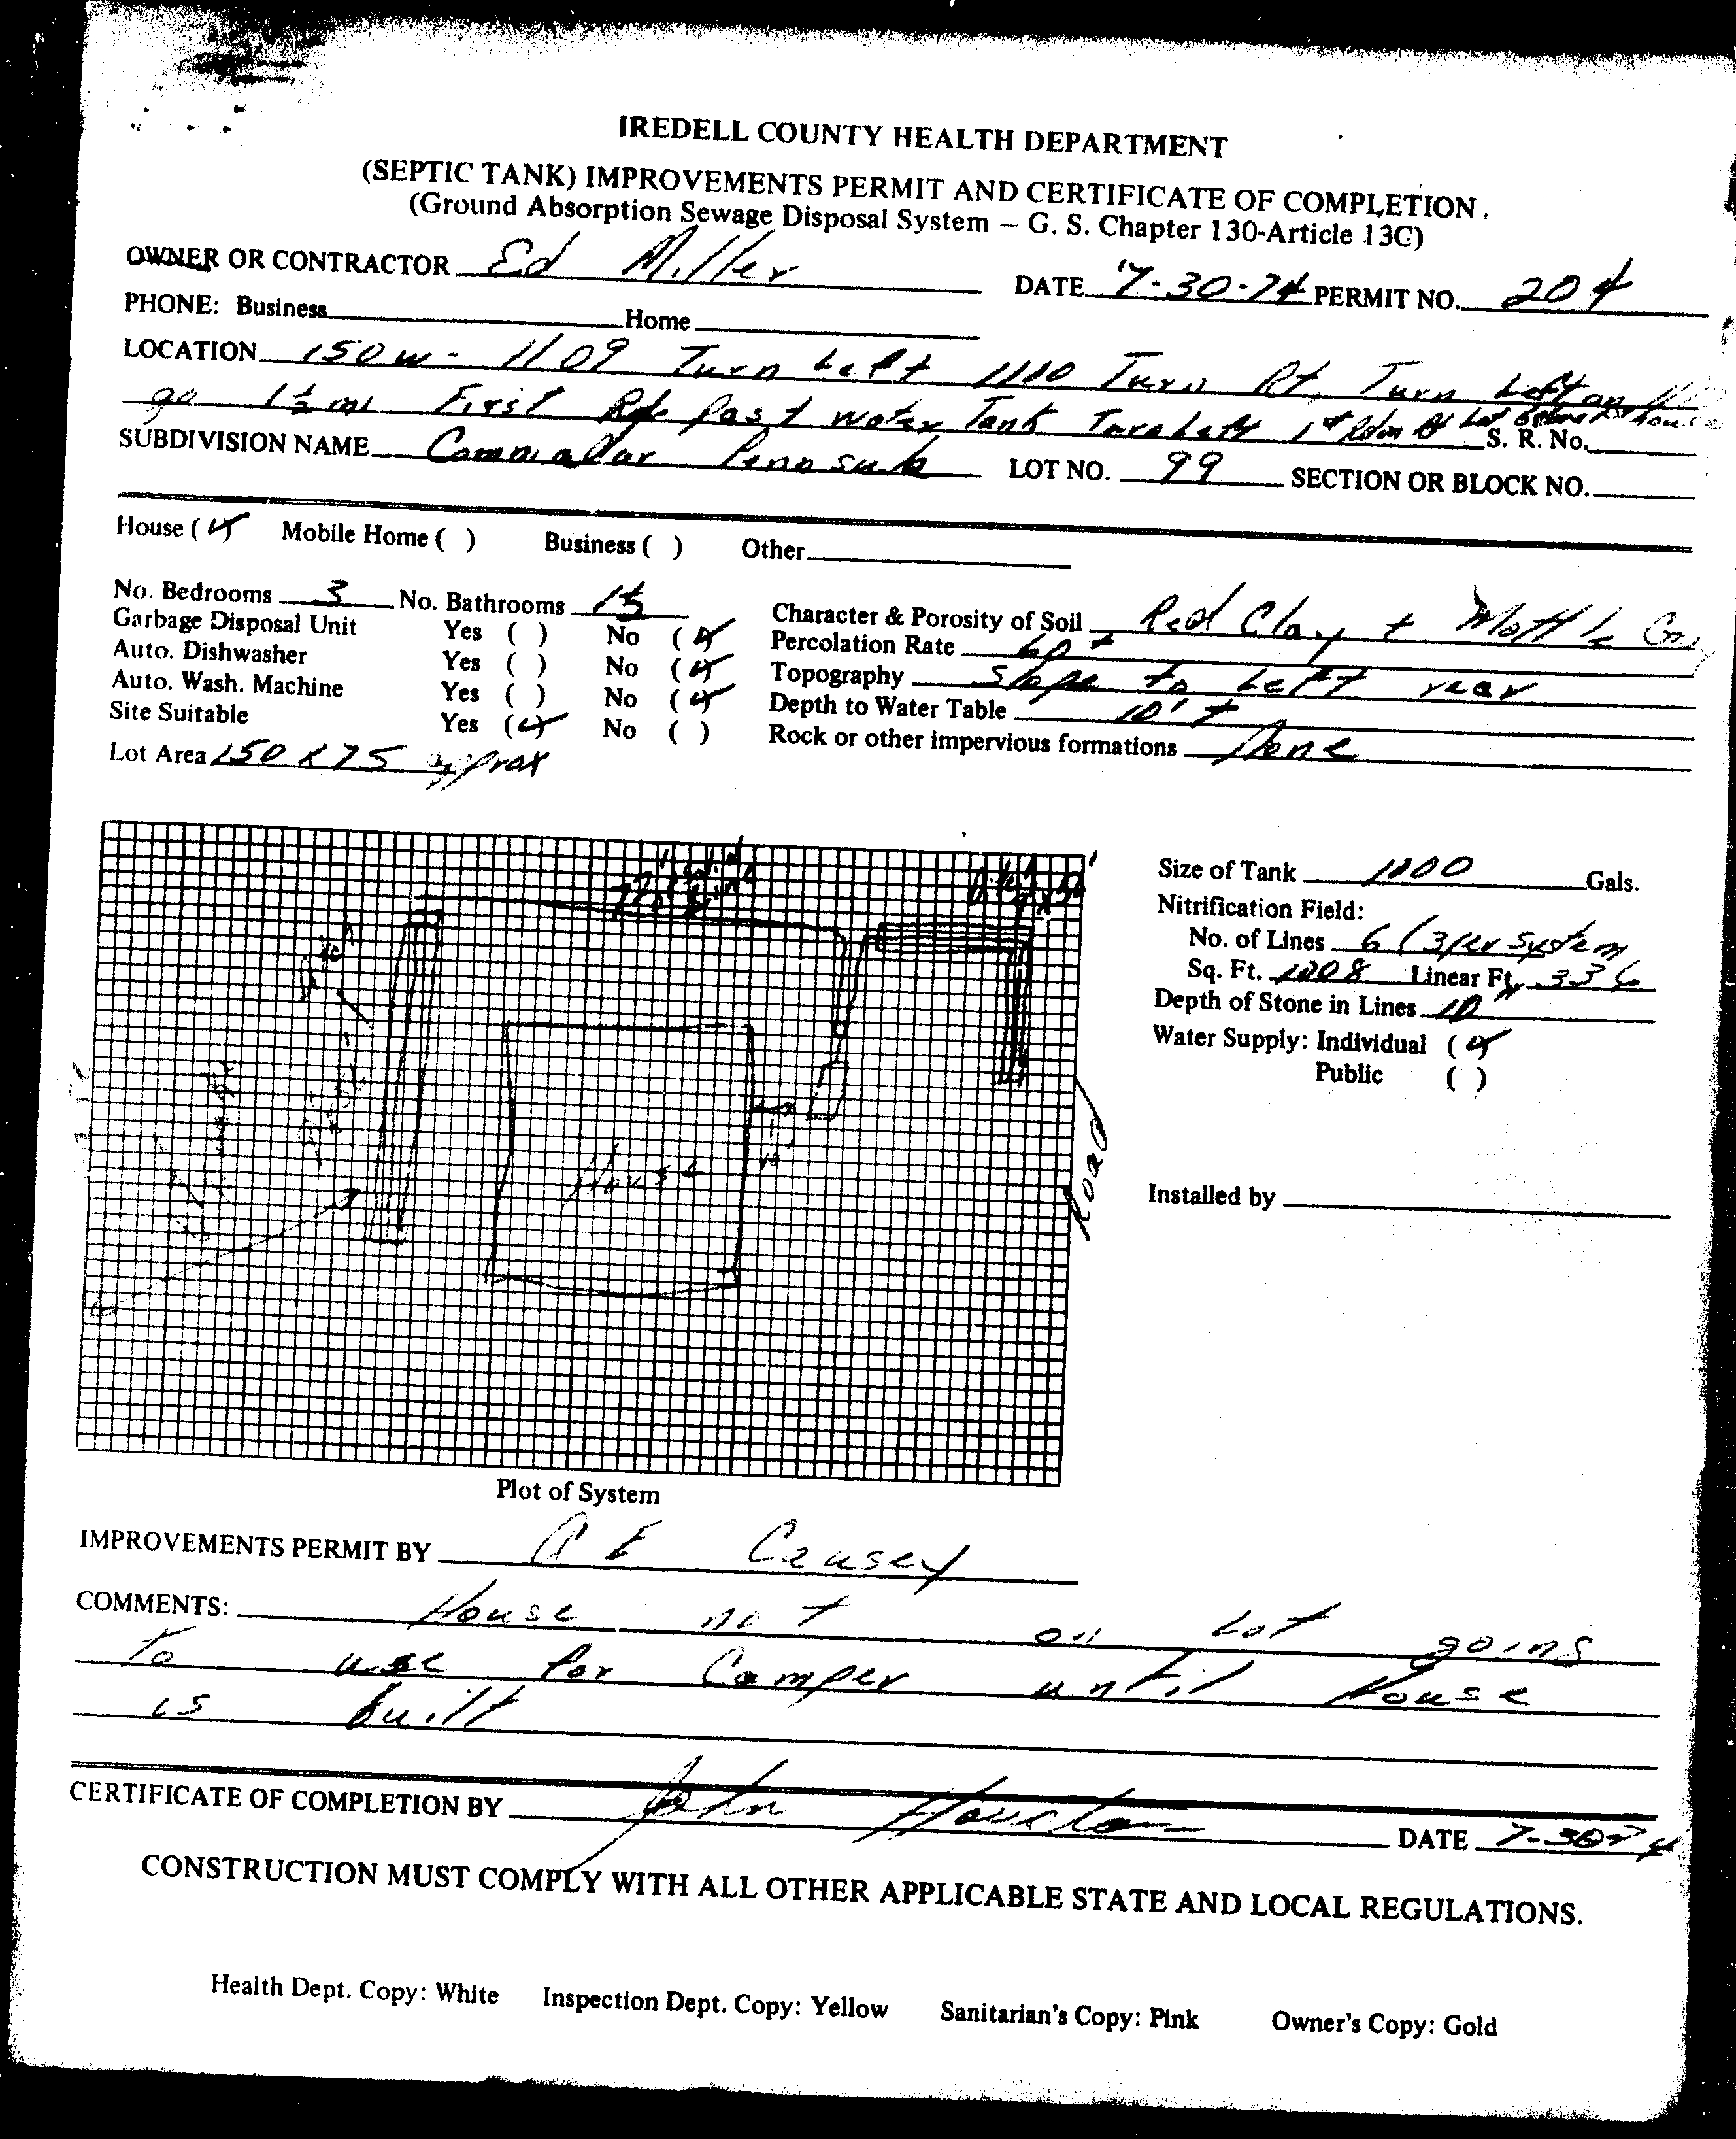 IREDELL COUNTY HEALTH DEPARTMENT
(SEPTIC TANK) IMPROVEMENTS PERMIT AND CERTIFICATE OF COMPLETION.
(Ground Absorption Sewage Disposal System — G. S. Chapter 130-Article 13C)
OWNER OR CONTRACTOR Ed Miller DATE 7-30-74 PERMIT NO. 204
PHONE: Business Home
LOCATION 150 W - 1109 Turn Left 1110 Turn Rt. Turn Left on
go 1½ mi First Rd past water Tank Turn Left 1st house
SUBDIVISION NAME LOT NO. 99 S. R. No.
SECTION OR BLOCK NO.
House (✓) Mobile Home ( ) Business ( ) Other
No. Bedrooms 3 No. Bathrooms 1½
Garbage Disposal Unit Yes ( ) No (✓)
Auto. Dishwasher Yes ( ) No (✓)
Auto. Wash. Machine Yes ( ) No (✓)
Site Suitable Yes (✓) No ( )
Lot Area 150 X 75 approx
Character & Porosity of Soil Red Clay + Mottle
Percolation Rate 60 +
Topography Slope to Left rear
Depth to Water Table 10' +
Rock or other impervious formations None
House
Road
Size of Tank 1000 Gals.
Nitrification Field:
No. of Lines 6 (3 per system
Sq. Ft. 1008 Linear Ft. 336
Depth of Stone in Lines 10"
Water Supply: Individual (✓)
Public ( )
Installed by
Plot of System
IMPROVEMENTS PERMIT BY Causey
COMMENTS: House not on Lot going
to use for Camper until House
is built
CERTIFICATE OF COMPLETION BY John Houston DATE 7-30-74
CONSTRUCTION MUST COMPLY WITH ALL OTHER APPLICABLE STATE AND LOCAL REGULATIONS.
Health Dept. Copy: White Inspection Dept. Copy: Yellow Sanitarian's Copy: Pink Owner's Copy: Gold